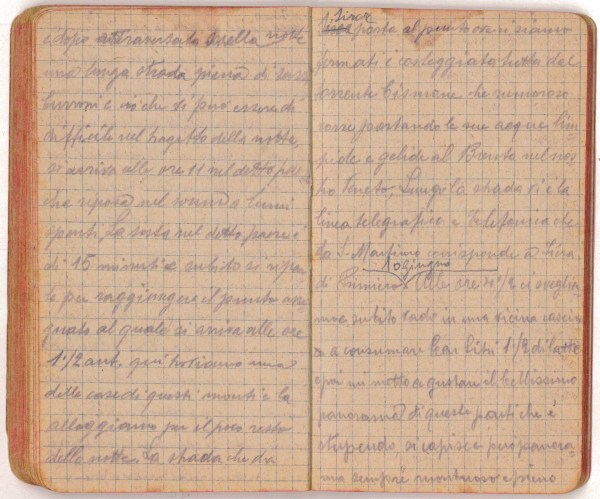 e dopo attraversata quella notte
una lunga strada piena di
e ciò che si può essere di
difficile nel tragitto della notte
si arriva alle ore 11 nel detto paese
che riposa nel sonno a lumi
spenti. La sosta nel detto paese è
di 15 minuti e subito si ripar
te per raggiungere il punto asse
gnato al quale si arriva alle ore
1 1/2 ant. qui troviamo una
delle case di questi monti e là
alloggiamo per il poco resto
della notte. La strada che da
porta al punto ove ci siamo
fermati è costeggiata tutta dal
torrente Cismone che rumoroso
corre portando le sue acque lim
pide e gelide al Brenta nel nos
tro Veneto. Lungo la strada vi è la
linea telegrafica e telefonica che
da S. Martino corrisponde a Fiera
di Primiero.
10 giugno
Alle ore 4 1/2 ci sveglia
mo e subito vado in una vicina casci
na a consumare litri 1 1/2 di latte
e poi mi metto a gustare il bellissimo
panorama di queste parti che è
stupendo, si capisce però panora
ma sempre montuoso e pieno